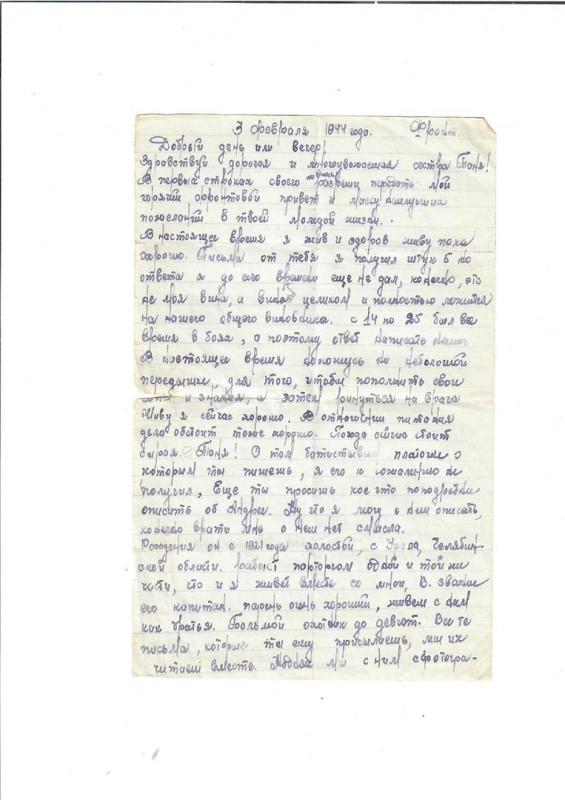 3 Февраля 1944 года. Фронт.
Добрый день или вечер!
Здравствуй дорогая и многоуважаемая сестра Таня!
В первых строках своего разреши передать мой
горячий фронтовой привет и массу наилучших
пожеланий в твоей молодой жизни.
В настоящее время я жив и здоров живу пока
хорошо. Письма от тебя я получил штук 6 но
ответа я до сего времени еще не дал, конечно, это
не моя вина, а вина целиком и полностью ложится
на нашего общего виновника. с 14 по 25 был все
время в боях, а поэтому ответ написать
В настоящее время нахожусь на небольшой
передышке, для того, чтобы пополнить свои
и знания, а затем ринуться на врага
Живу я сейчас хорошо. В отношении питания
дело обстоит тоже хорошо. Погода сейчас стоит
сырая. Таня! О том батистовым платочке о
котором ты пишешь, я его к сожалению не
получил, Еще ты просишь кое что поподробнее
описать об Андрее. Ну что я могу о нем описать,
конечно врать мне о нем нет смысла.
Рождения он с 1921 года холостой, с Урала, Челябин-
ской области. работает парторгом одной и той же
части, что и я живет вместе со мной, В звании
его капитан. парень очень хороший, живем с ним
как братья. Большой охотник до девчат. Все те
письма, которые ты ему присылаешь, мы их
читаем вместе. мы с ним сфотогра-